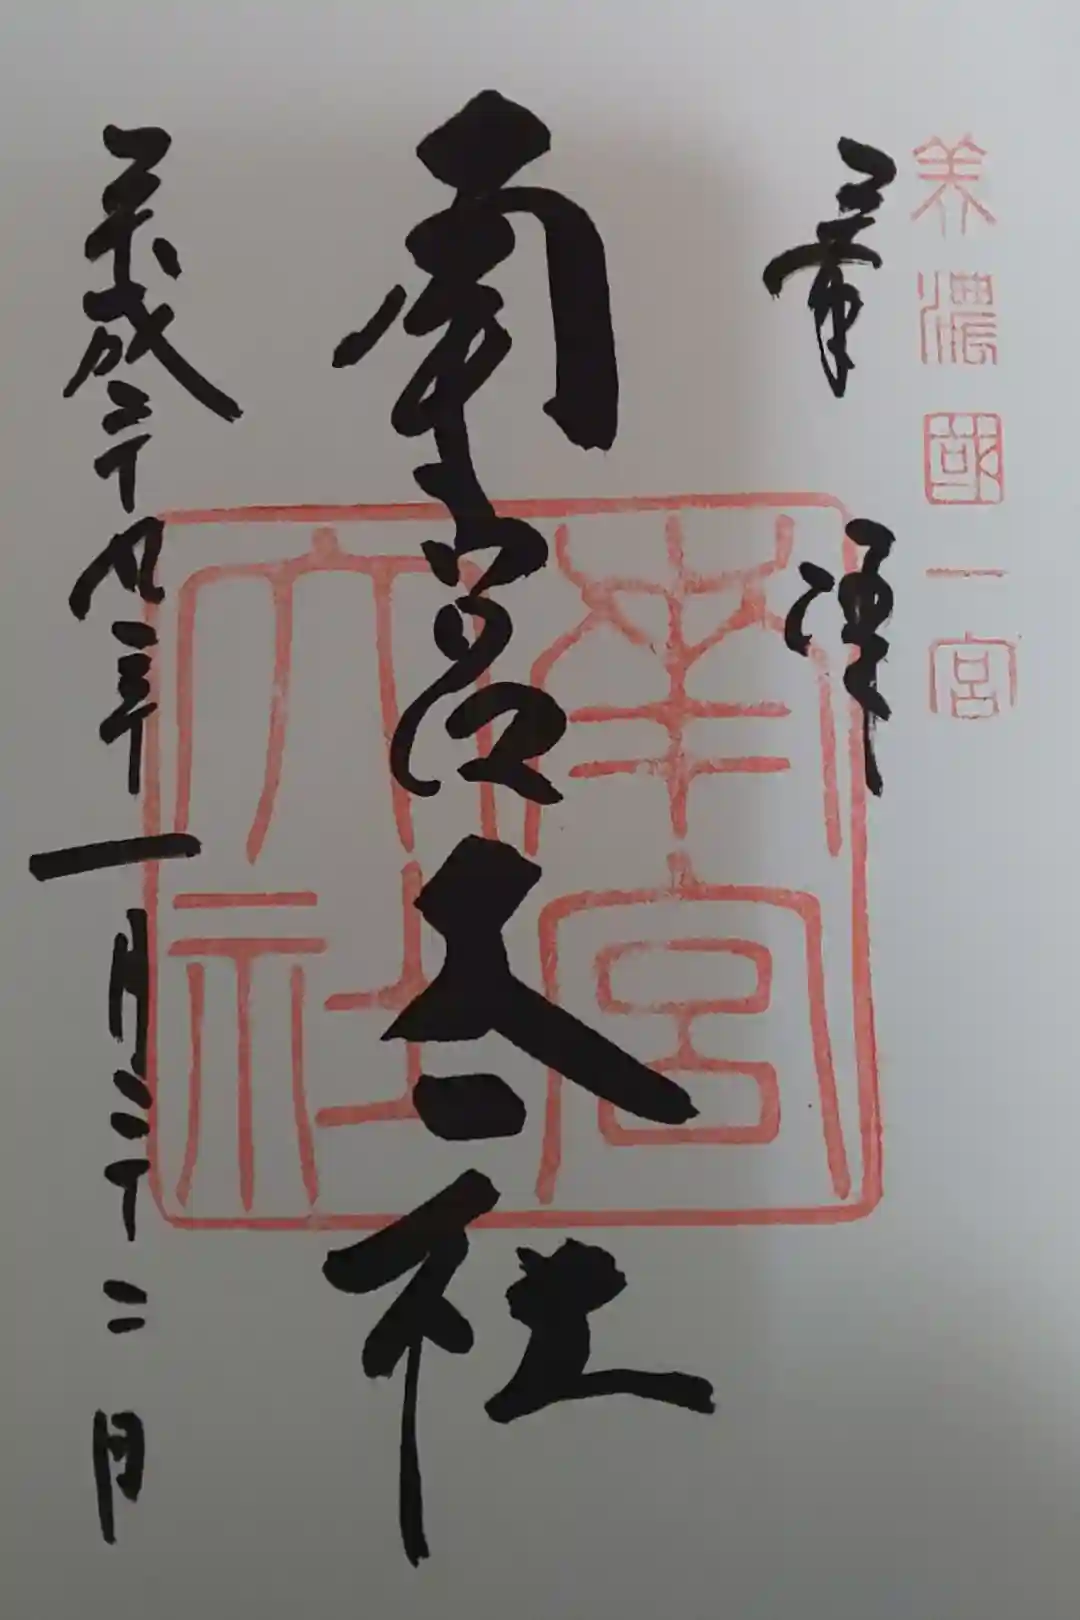 美濃國一宮
奉拝
南宮大社
南宮大社
平成二十九年一月二十二日